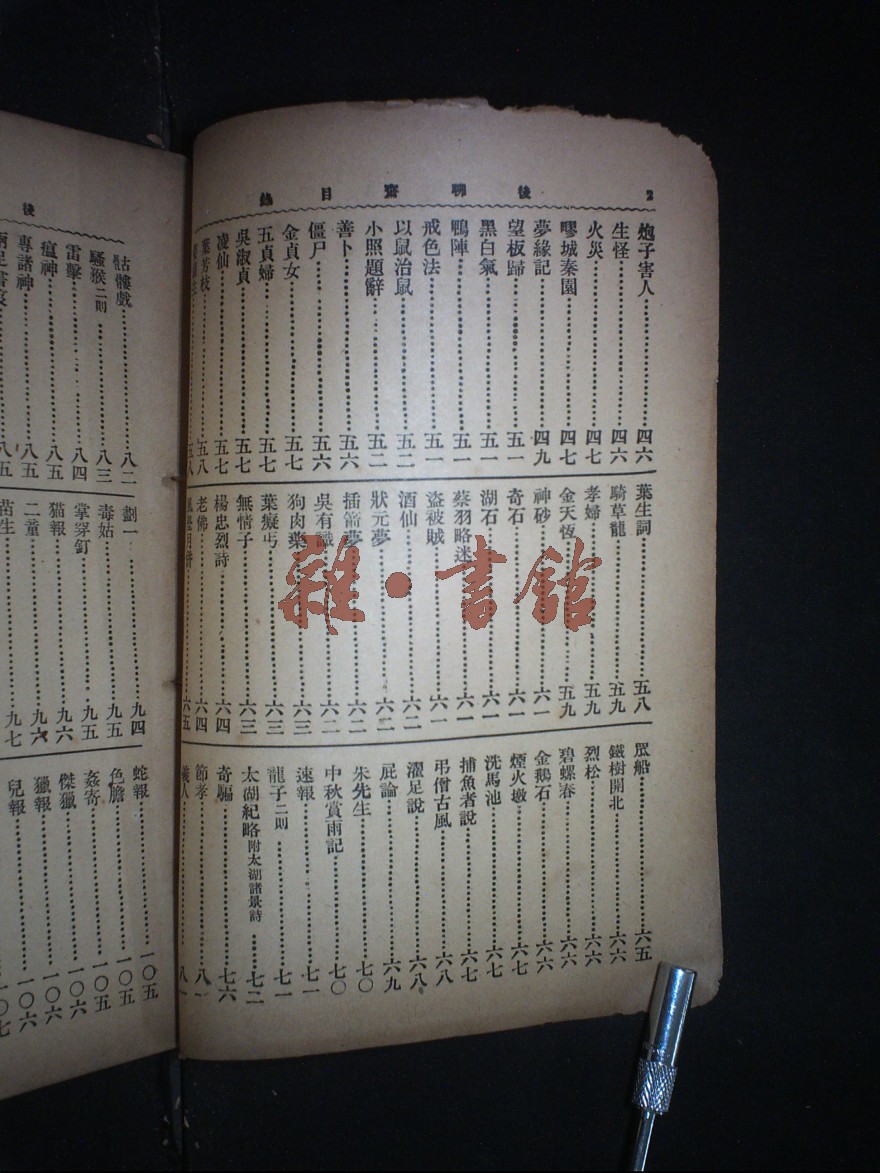 2 後聊齋目錄
炮子害人……四六
生怪……四六
火災……四七
嘐城秦園……四七
夢緣記……四九
望板歸……五一
黑白氣……五一
鴨陣……五一
戒色法……五一
以鼠治鼠……五二
小照題辭……五二
善卜……五六
僵尸……五六
金貞女……五七
五貞婦……五七
吳淑貞……五七
凌仙……五七
葉芳枝……五八
五八
葉生詞……五八
騎草龍……五九
孝婦……五九
金天恆……五九
神砂……六一
奇石……六一
湖石……六一
蔡羽略迷……六一
盜被賊……六一
酒仙……六二
狀元夢……六二
插箭夢……六二
吳有識……六二
狗肉藥……六三
葉癡丐……六三
無情子……六三
楊忠烈詩……六四
老佛……六四
六五
眾船……六五
鐵樹開北……六六
烈松……六六
碧螺春……六六
金鵝石……六六
煙火墩……六七
洗馬池……六七
捕魚者說……六七
弔僧古風……六八
濯足說……六八
屁論……六九
朱先生……七〇
中秋賞雨記……七〇
速報……七一
龍子二則……七一
太湖紀略附太湖諸景詩……七二
奇騙……七六
節孝……八一
義人……八一
後
骷髏戲……八二
騷猴二則……八三
雷擊……八四
瘟神……八五
專諸神……八五
八五
劃一……九四
毒姑……九五
掌穿釘……九五
猫報……九六
二童……九六
苗生……九七
蛇報……一〇五
色膽……一〇五
姦奇……一〇五
傑獵……一〇六
獵報……一〇六
兒報……一〇七
雜·書館